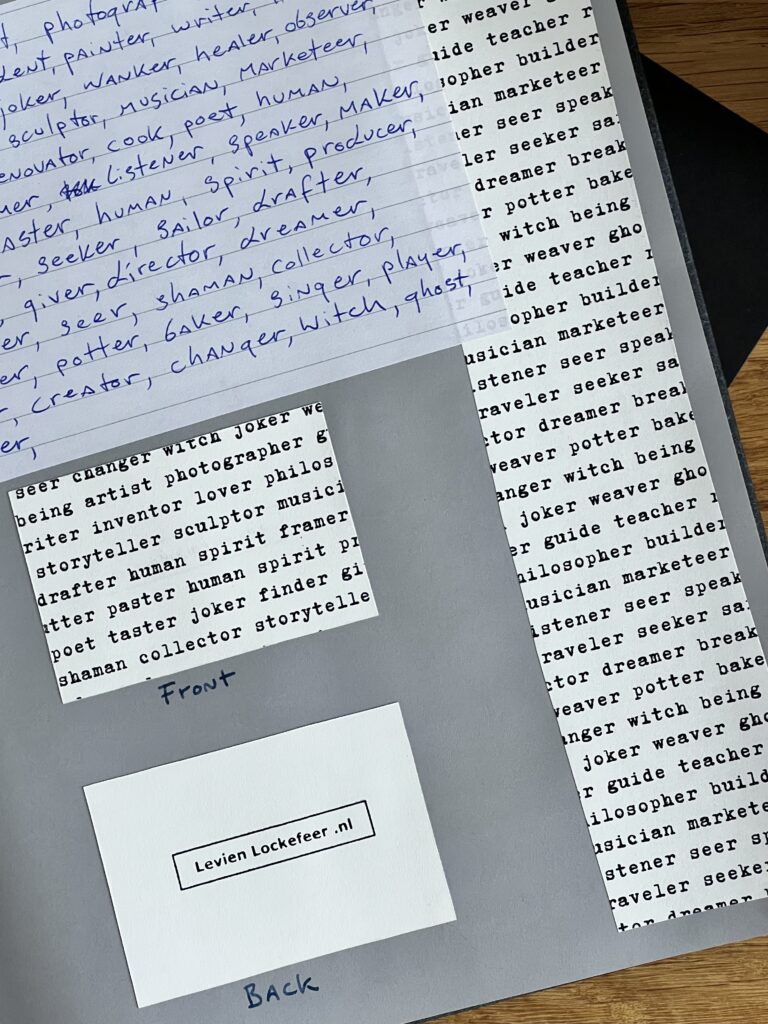 t, photograp
dent, painter, writer,
joker, wanker, healer, observer,
sculptor, musician, marketeer,
enovator, cook, poet, human,
mer, listener, speaker, maker,
aster, human, spirit, producer,
r, seeker, sailor, drafter,
giver, director, dreamer,
er, seer, shaman, collector,
er, potter, baker, singer, player,
r, creator, changer, witch, ghost,
er,
seer changer witch joker we
being artist photographer g
riter inventor lover philos
storyteller sculptor musici
drafter human spirit framer
utter paster human spirit pr
poet taster joker finder gi
shaman collector storytelle
Front
Levien Lockefeer .nl
Back
anger
er weaver g
uide teacher r
sopher builder
ian marketeer
ner seer speak
ler seeker sai
tor dreamer break
r potter bake
witch being
er weaver gho
ide teacher r
opher builder
usician marketeer
stener seer speak
raveler seeker sa
ctor dreamer break
weaver potter bake
anger witch being
joker weaver gho
er guide teacher r
hilosopher builder
usician marketeer
istener seer speak
raveler seeker sai
ctor dreamer break
weaver potter bake
anger witch being
joker weaver gho
r guide teacher
ilosopher build
usician markete
stener seer sp
raveler seeker
tor dreamer